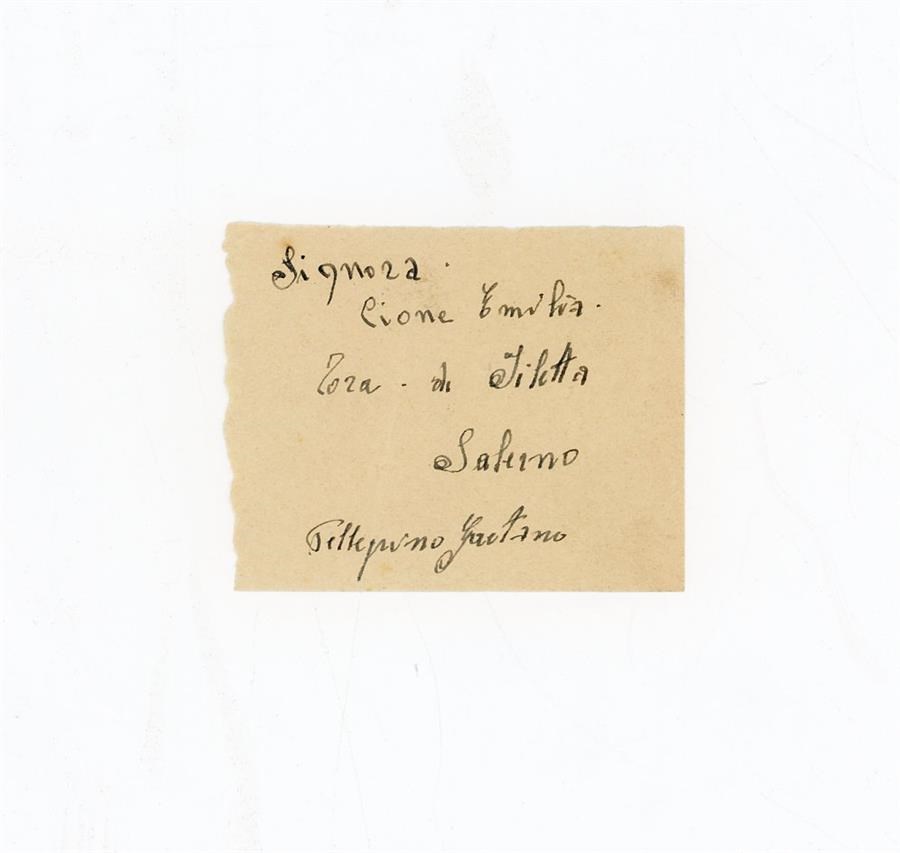 Signora.
Cione Emilia.
Tora. di Filetta
Salerno
Pellegrino Gaetano